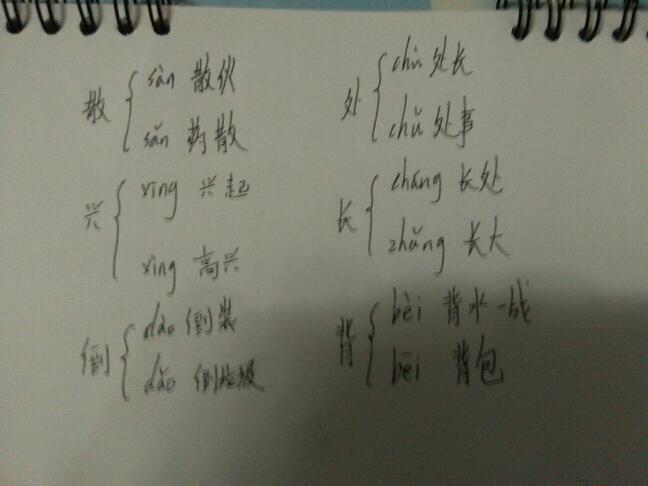 散 sàn 散伙
sǎn 药散
兴 xīng 兴起
xìng 高兴
倒 dào 倒装
dǎo 倒垃圾
处 chù 处长
chǔ 处事
长 cháng 长处
zhǎng 长大
背 bèi 背水一战
bēi 背包